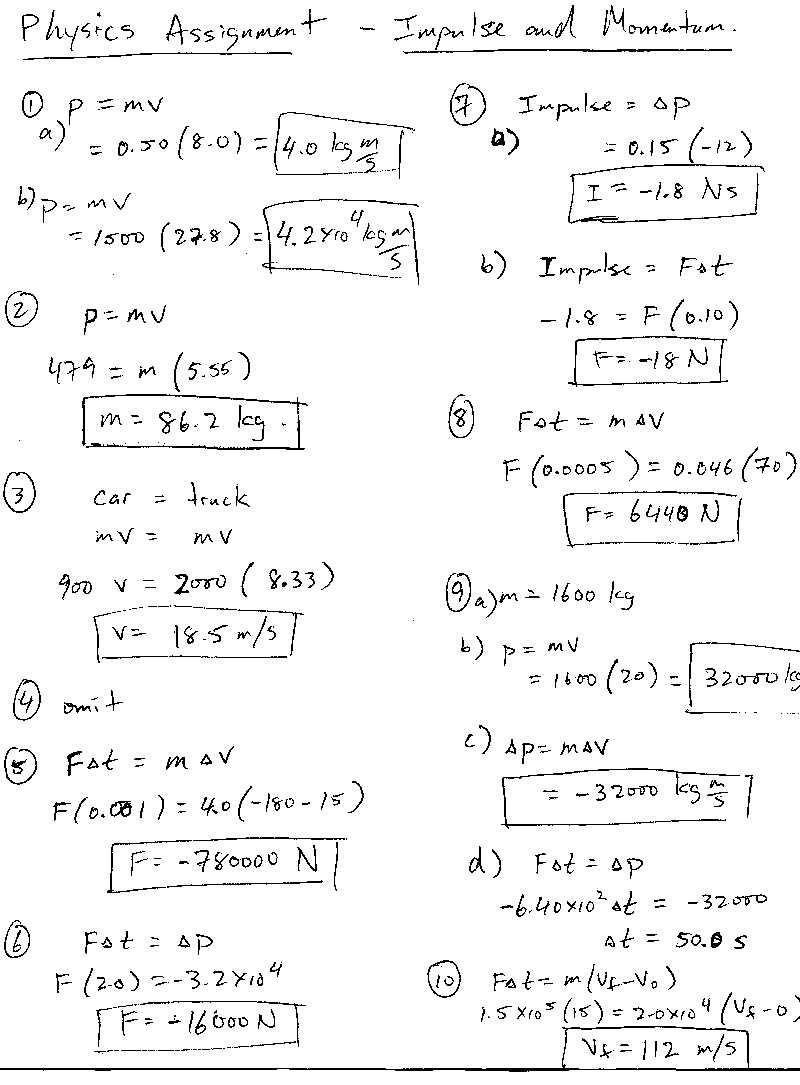 Physics Assignment - Impulse and Momentum.
① p = mv
a) = 0.50 (8.0) = 4.0 kg m/s
b) p = mv
= 1500 (27.8) = 4.2x10⁴ kg m/s
② p = mv
479 = m (5.55)
m = 86.2 kg.
③ car = truck
mv = mv
900 v = 2000 (8.33)
v = 18.5 m/s
④ omit
⑤ F∆t = m ∆V
F(0.001) = 4.0 (-180-15)
F = -780000 N
⑥ F∆t = ∆p
F (2.0) = -3.2x10⁴
F = -16000 N
⑦ Impulse = ∆p
a) = 0.15 (-12)
I = -1.8 Ns
b) Impulse = F∆t
-1.8 = F (0.10)
F = -18 N
⑧ F∆t = m ∆V
F (0.0005) = 0.046 (70)
F = 6440 N
⑨ a) m = 1600 kg
b) p = mv
= 1600 (20) = 32000 kg
c) ∆p = m∆V
= -32000 kg m/s
d) F∆t = ∆p
-6.40x10² ∆t = -32000
∆t = 50.0 s
⑩ F∆t = m(Vf-Vo)
1.5x10⁵ (15) = 2.0x10⁴ (Vf-0)
Vf = 112 m/s